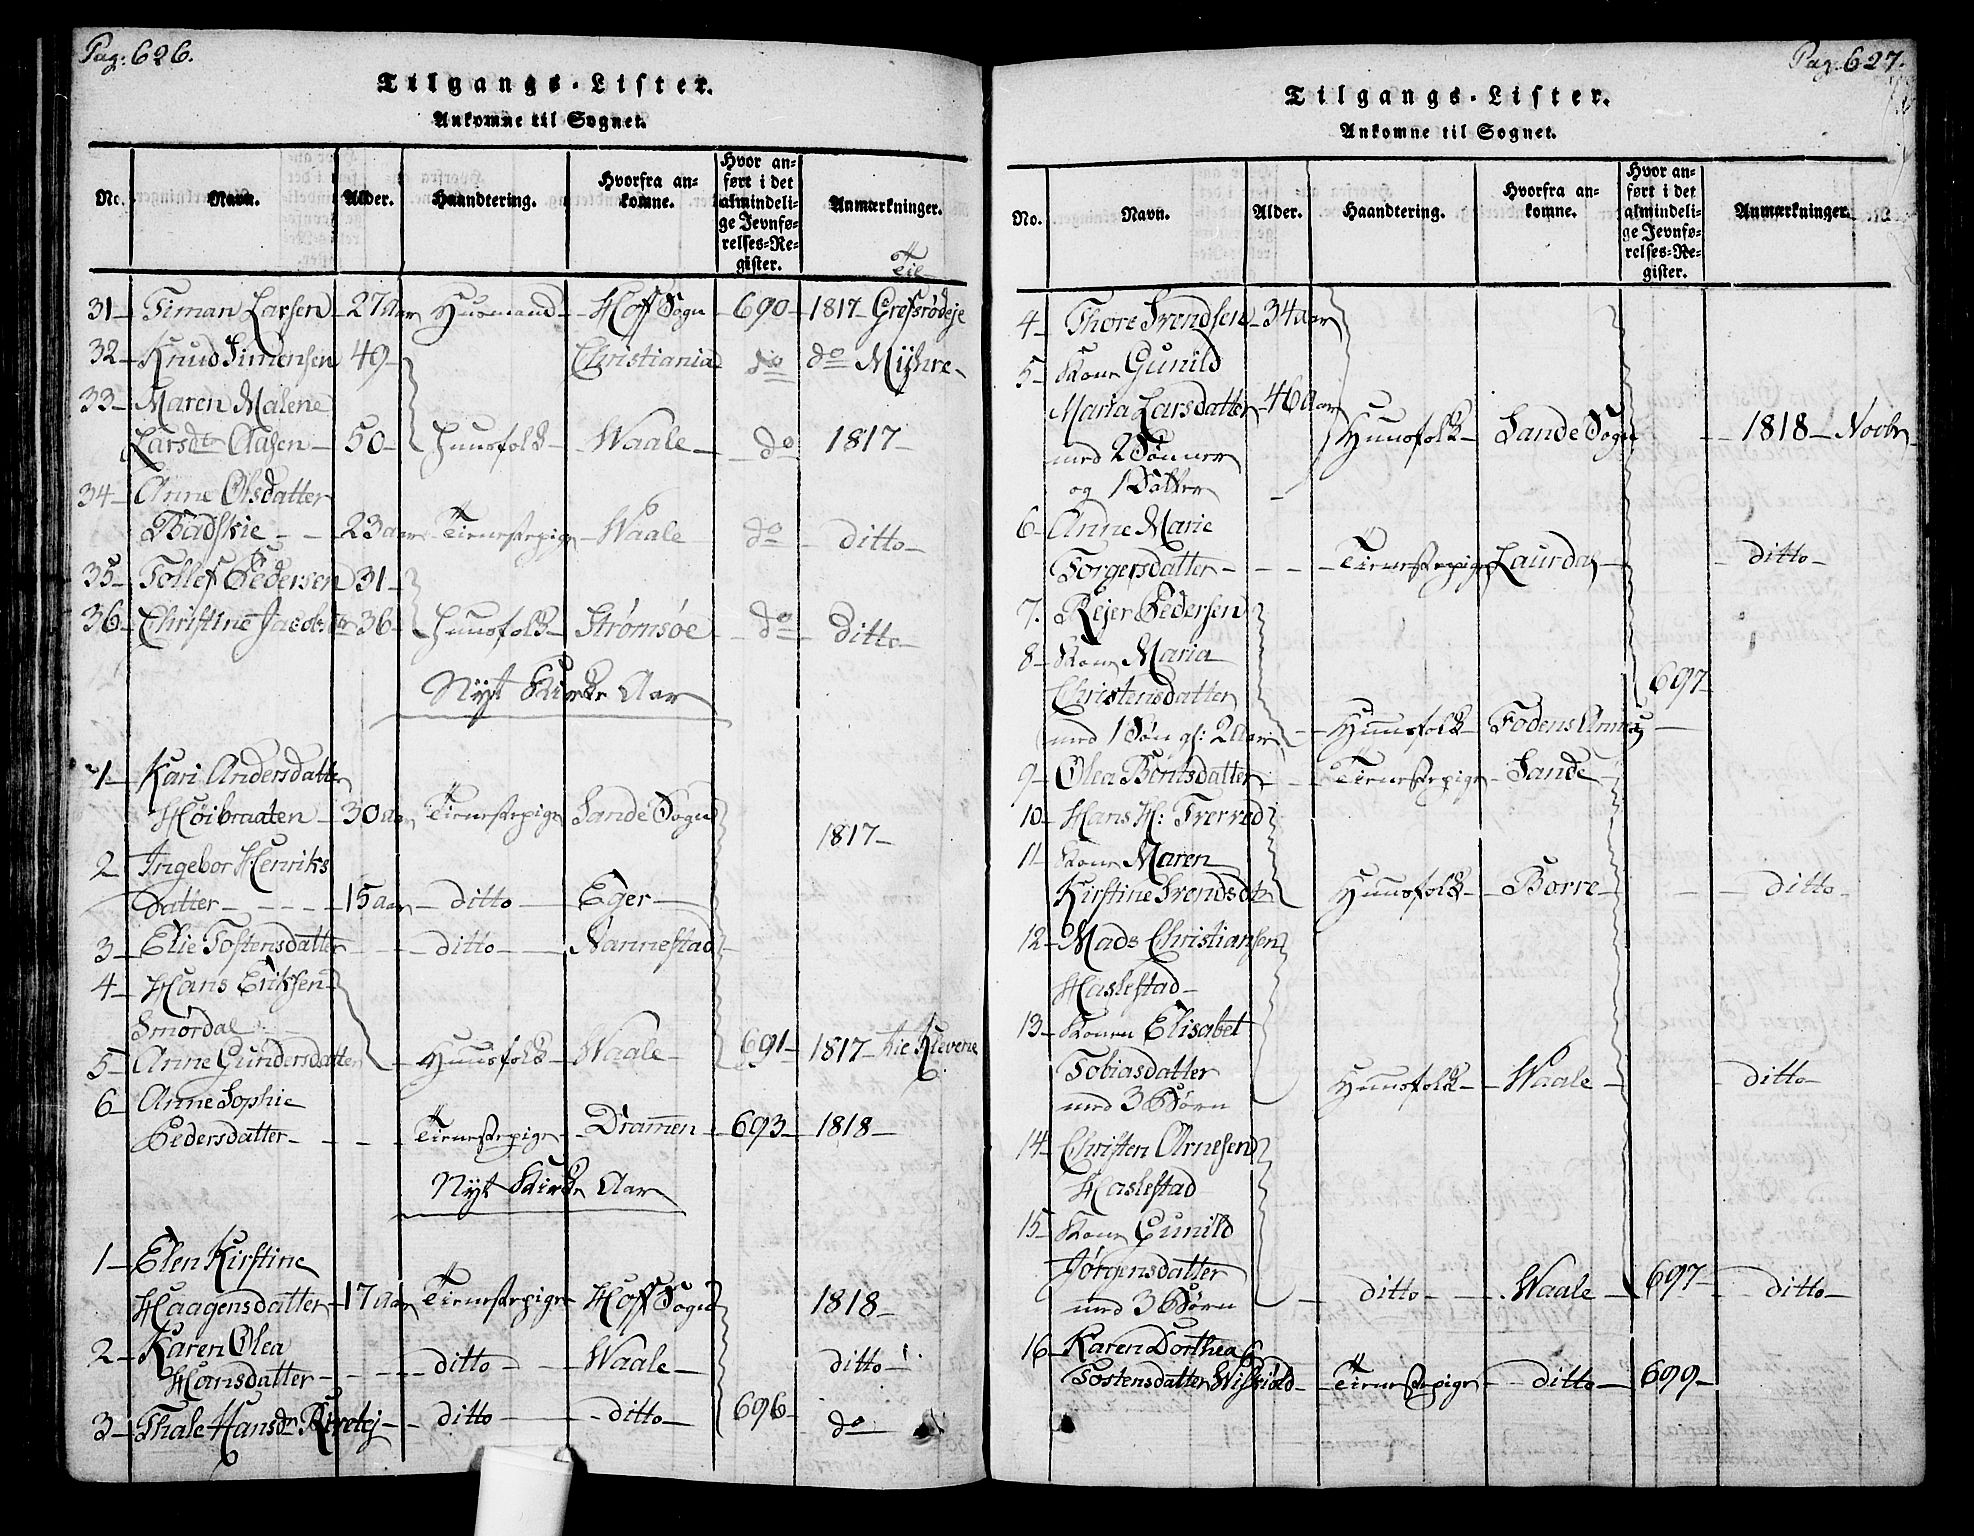 Pag: 626.
Tilgangs-Lister.
Ankomne til Sognet.
No. Navn. Alder. Haandtering. Hvorfra ankomne. Hvor anført i det almindelige Jevnførelses-Register. Anmærkninger.
Til
31 Timan Larsen 27 Aar Huusmand Hoff Sogn 690 1817 Grefsrødeje
32 Knud Simensen 49 Christiania do do Myhre
33 Maren Malene
Larsdtr Aasen 50 Huusfolk Waale do 1817
34 Anne Olsdatter
Badskie 23 aar Tienestepige Waale do ditto
35 Tollef Pedersen 31
36 Christine Jacobsdtr 36 Huusfolk Strømsøe do ditto
Nyt Kirke Aar
1 Kari Andersdatter
Høibraaten 30 aar Tienestepige Sande Sogn 1817
2 Ingebor Henriks
datter 15 aar ditto Eger
3 Elie Tostensdatter ditto Nannestad
4 Hans Eriksen
Smørdal
5 Anne Gundersdatter Huusfolk Waale 691 1817 tie Klevene
6 Anne Sophie
Pedersdatter Tienestepige Drammen 693 1818
Nyt Kirke Aar
1 Elen Kirstine
Haagensdatter 17 aar Tienestepige Hoff Sogn 1818
2 Karen Olea
Hansdatter ditto Waale ditto
3 Thale Hansdr ditto ditto 696 do
Pag. 627.
Tilgangs-Lister.
Ankomne til Sognet.
No. Navn. Alder. Haandtering. Hvorfra ankomne. Hvor anført i det almindelige Jevnførelses-Register. Anmærkninger.
4 Thore Svendsen 34 aar
5 Kone Gunild
Maria Larsdatter 46 aar Huusfolk Sande Sogn 1818 Novbr
med 2 Sønner
og 1 Datter
6 Anne Marie
Torgersdatter Tienestepige Laurdal ditto
7. Rejer Pedersen
8 Kone Maria 697
Christensdatter
med 1 Søn gl: 2 Aar Huusfolk Fodens Annex
9 Olea Børntsdatter Tienestepige Sande
10 Hans H: Trerød
11 Kone Maren
Kirstine Svendsdtr Huusfolk Borre ditto
12 Mads Christiansen
Haslestad
13 Konen Elisabet
Tobiasdatter Huusfolk Waale ditto
med 3 Børn
14 Christen Arnesen
Haslestad
15 Kone Gunild
Jørgensdatter
med 3 Børn ditto Waale 697 ditto
16 Karen Dorthea
Tostensdatter Tienestepige ditto 699